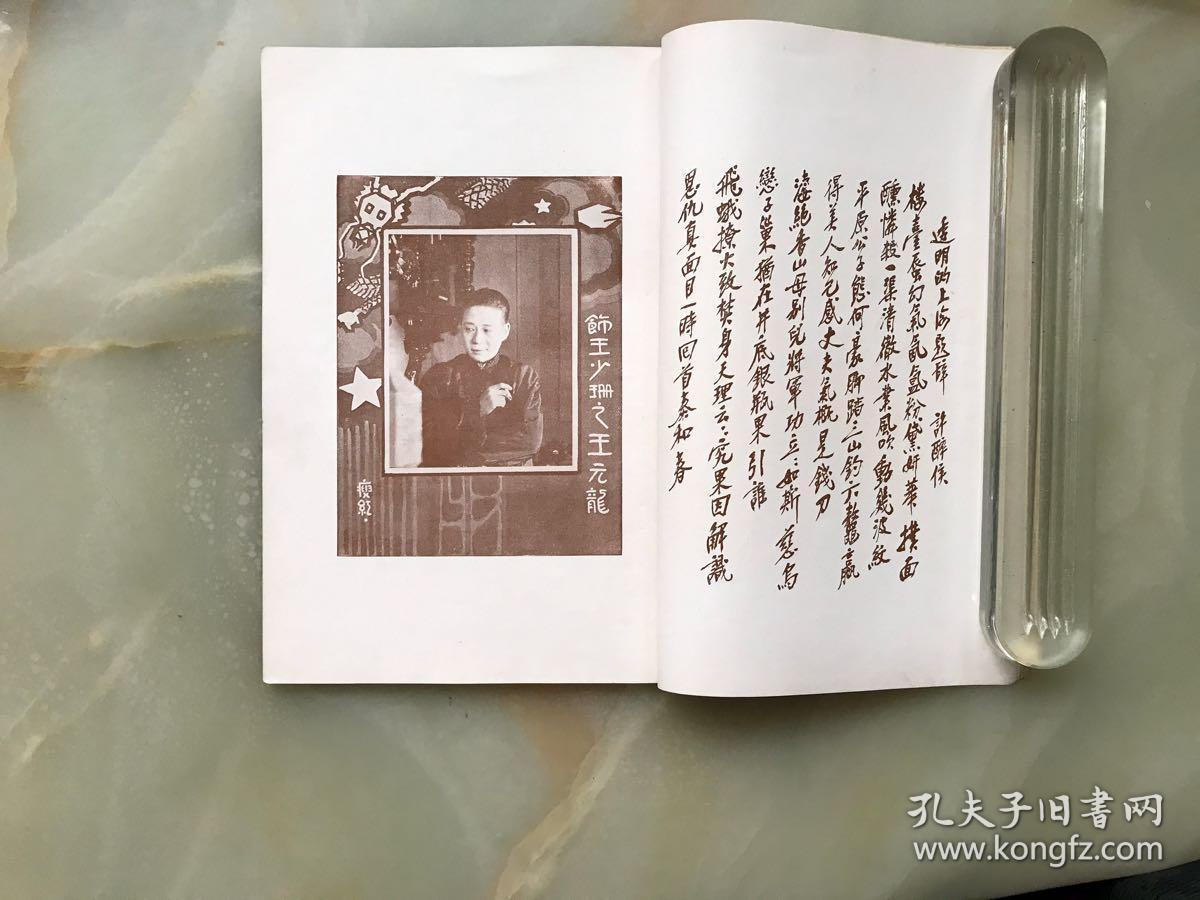 透明的上海題辭 許醉侯
樓臺蜃幻氣氤氳粉黛奸華撲面
醺憐殺一渠清徹水業風吹動幾波紋
平原公子態何豪脚踏三山釣六鼇贏
得美人知己感丈夫氣概是錢刀
海絕香山母別兒將軍功立立如斯慈烏
戀子巢猶在井底銀瓶果引誰
飛蛾撩火致焚身天理云云究果因解識
恩仇真面目一時回首泰和春
飾王少珊之王元龍
瘦紅
孔夫子旧书网
www.kongfz.com